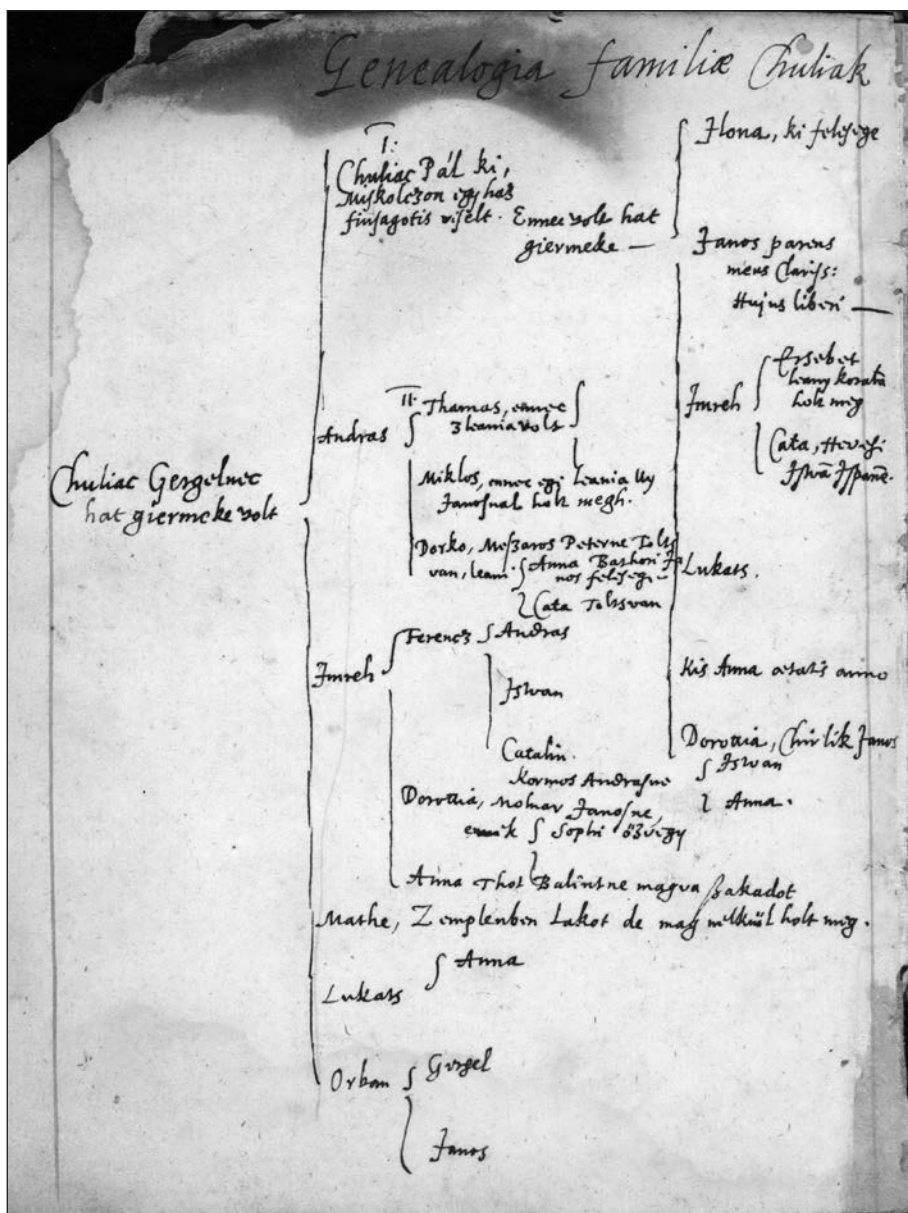 Genealogia familiæ Chuliak
Chuliac Gergelnec
hat giermeke volt
I:
Chuliac Pál ki,
Miskolczon egy haz
fiusagotis viselt. Ennec vole hat
giermeke —
Ilona, ki felesege
Janos parens
meus Clariss:
Hujus liberi —
Imreh
Ersebet
leany koraba
holt meg
Cata, Hevesi
Istva Ispane.
Lukats.
Kis Anna ætatis anno
Dorottia, Chirlik Janos
Istvan
Anna.
Andras
II. Thamas, ennec
3 leania volt
Miklos, ennec egi leania Uy
Janosnal holt megh.
Dorko, Meszaros Peterne Tolts
van, leani. Anna Bathori Ja
nos felesegi
Cata Toltsvan
Imreh
Ferencz Andras
Istvan
Catalin.
Kormos Andrasne
Dorottia, Molnar Janosne,
ennik Sophi özvegy
Anna Thot Balintne magva szakadot
Mathe, Zemplenben Lakot de mag nelkuöl holt meg.
Lukats
Anna
Orban Gergel
Janos